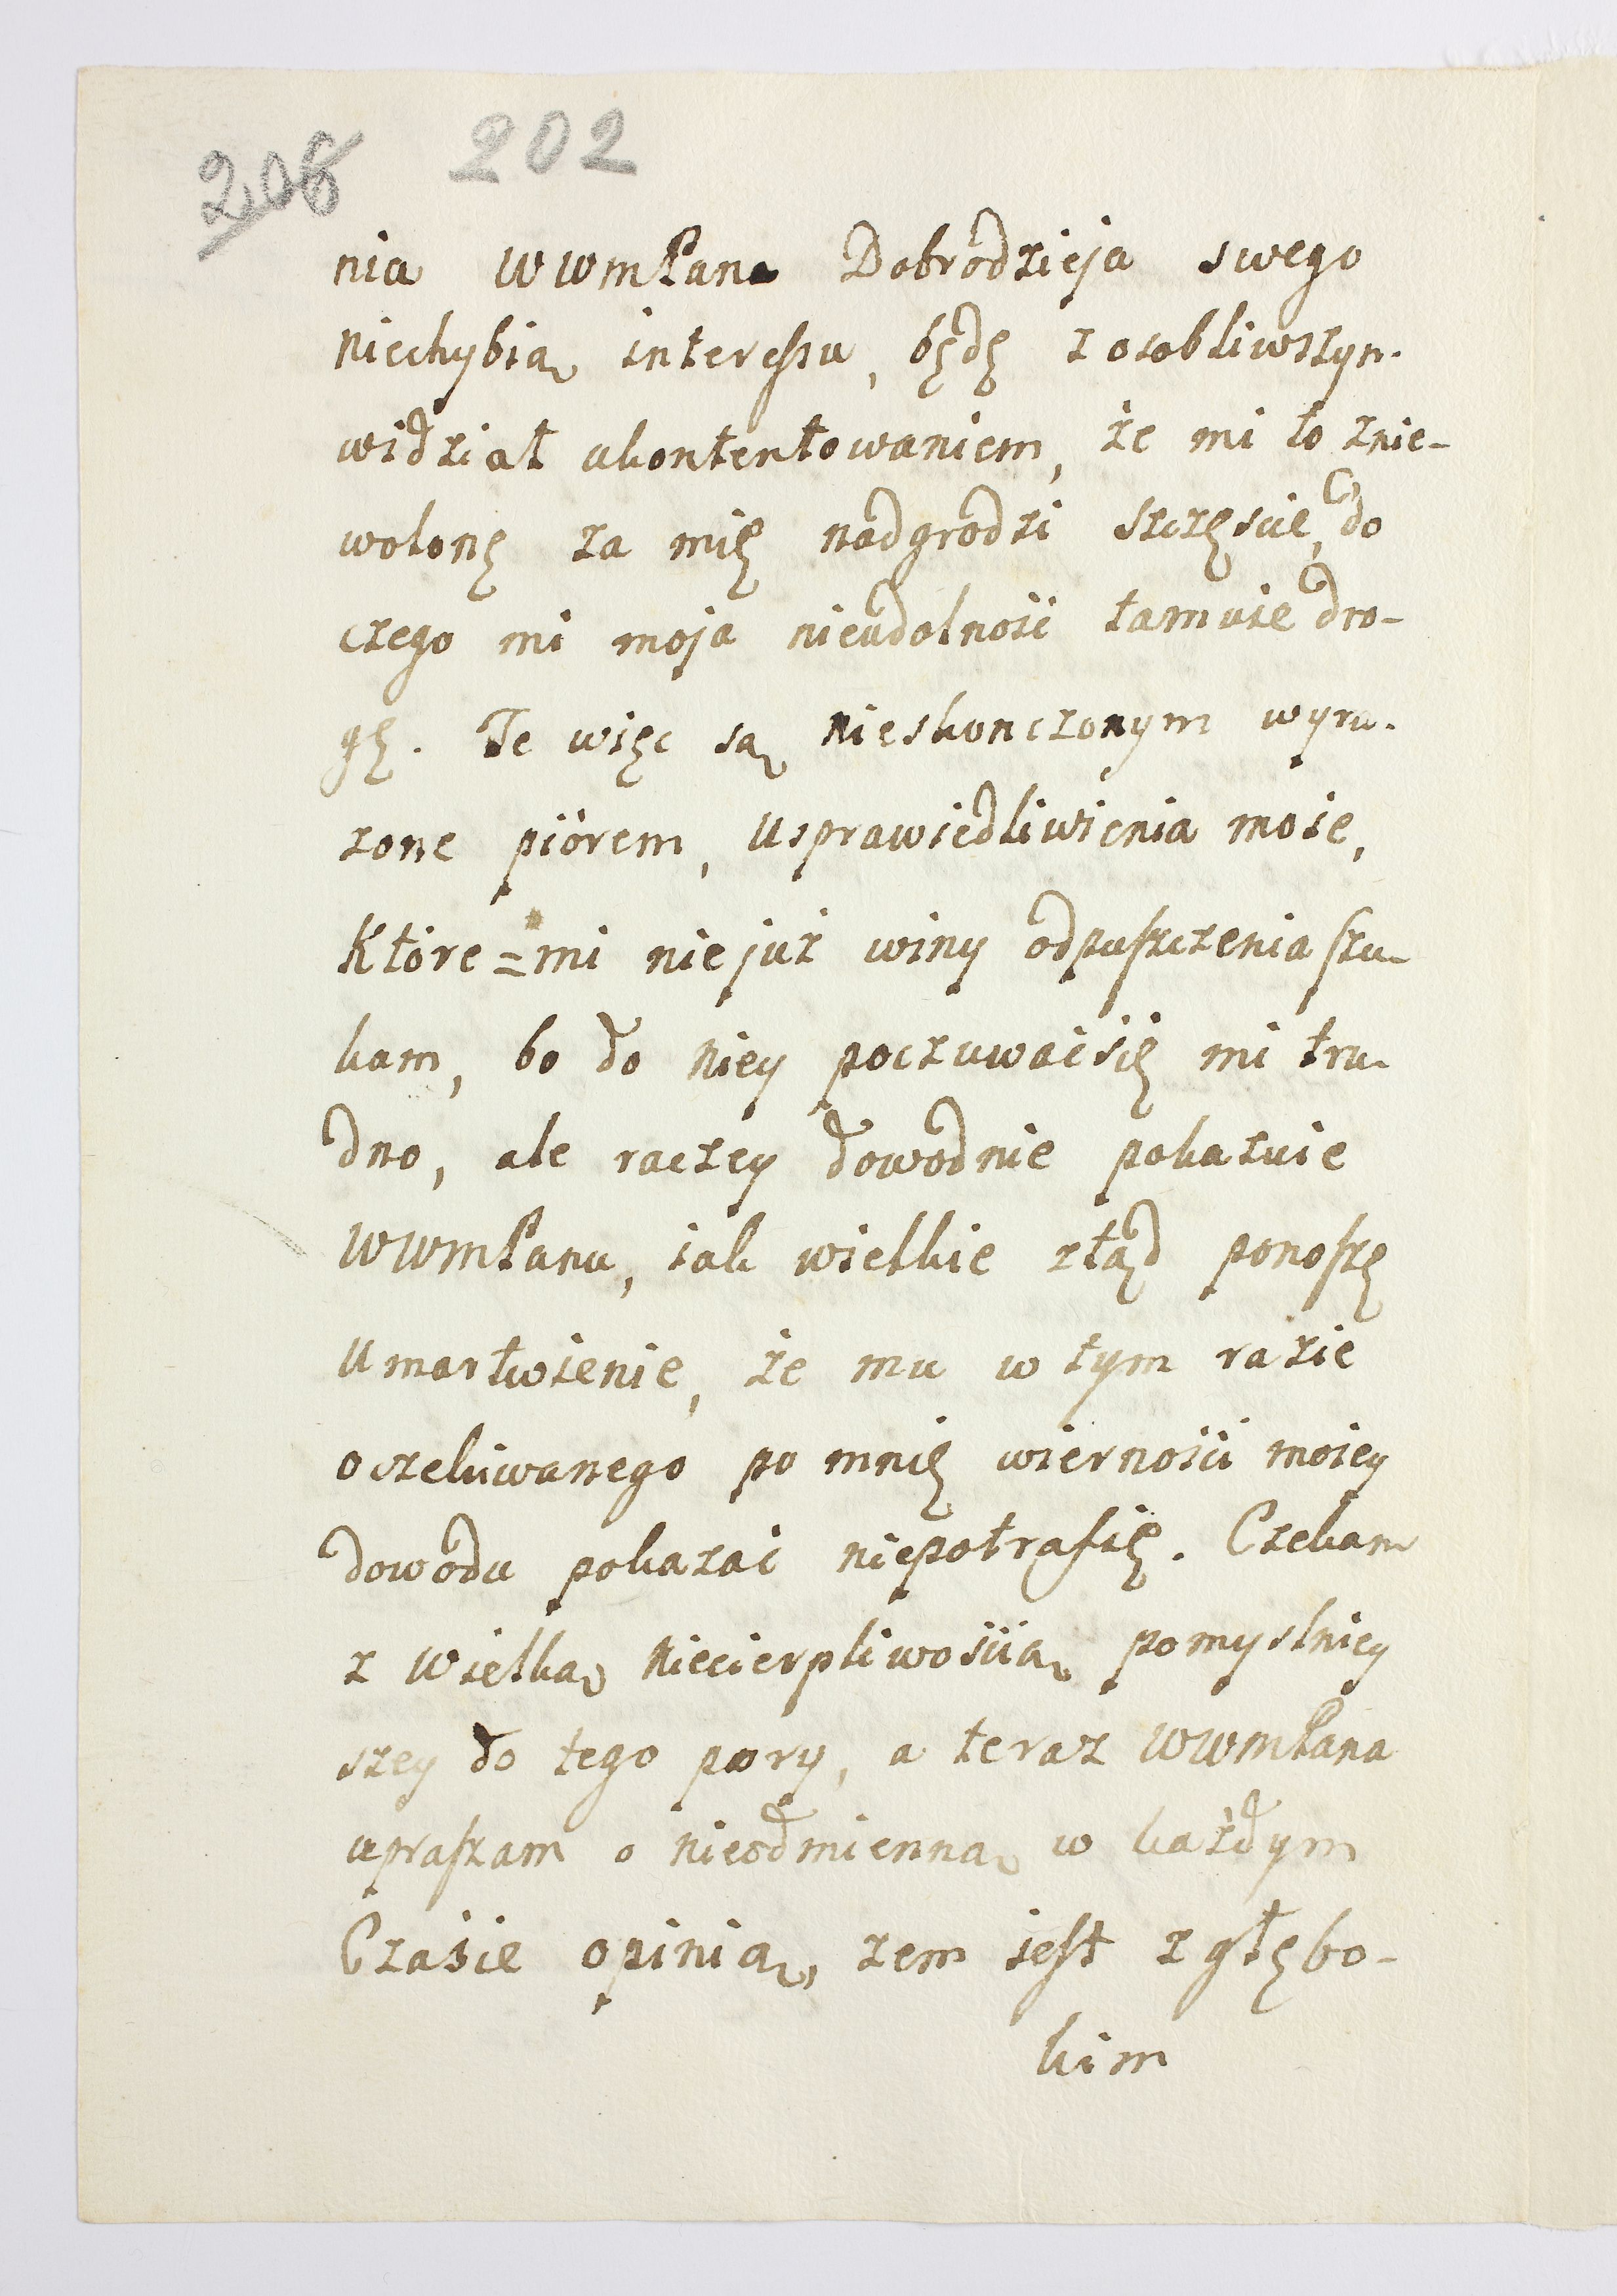 208 202
nia WWmPana Dobrodzieja swego
niechybią interessu, będę z osobliwszym
widział ukontentowaniem, że mi to znie-
wolonę za mię nadgrodzi szczęscie, do
czego mi moja nieudolność tamuie dro-
gę. Te więc są nieskonczonym wyra-
zone piórem, usprawiedliwienia moie,
Które=mi nie już winy odpuszczenia szu-
kam, bo do niey poczuwać się mi tru-
dno, ale raczey dowodnie pokazuie
WWmPanu, iak wielkie ztąd ponoszę
umartwienie, że mu w tym razie
oczekiwanego po mnię wierności moiey
dowodu pokazać niepotrafię. Czekam
z wielką niecierpliwością pomyslniey
szey do tego pory, a teraz WWmPana
upraszam o nieodmienną w każdym
Czasie opinią, zem iest z głębo-
kim